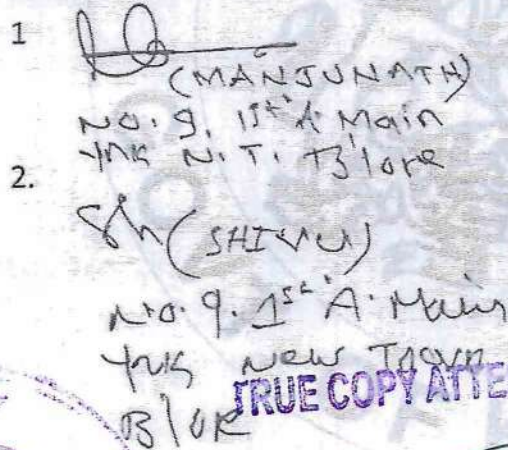 1
(MANJUNATH)
No. 9. 1st A Main
YNK N.T. B'lore
2.
(SHIVU)
No. 9. 1st A. Main
YNK New Town
B'lore
TRUE COPY ATTE